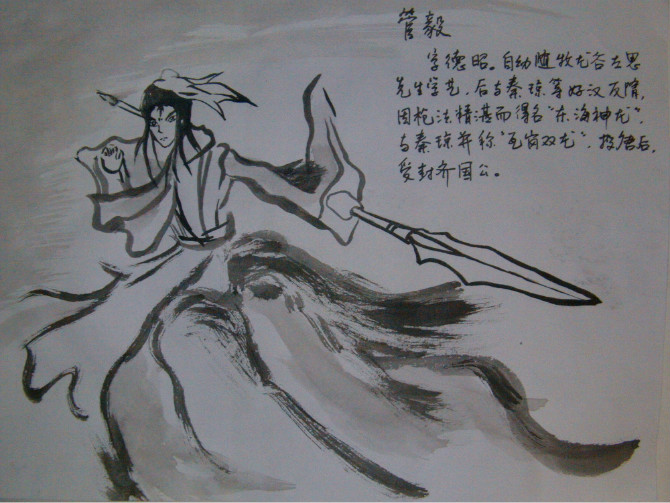 管毅
字德昭。自幼随牧龙谷左思
先生学艺，后与秦琼等好汉反隋，
因枪法精湛而得名“东海神龙”，
与秦琼并称“瓦岗双龙”。投唐后，
受封齐国公。